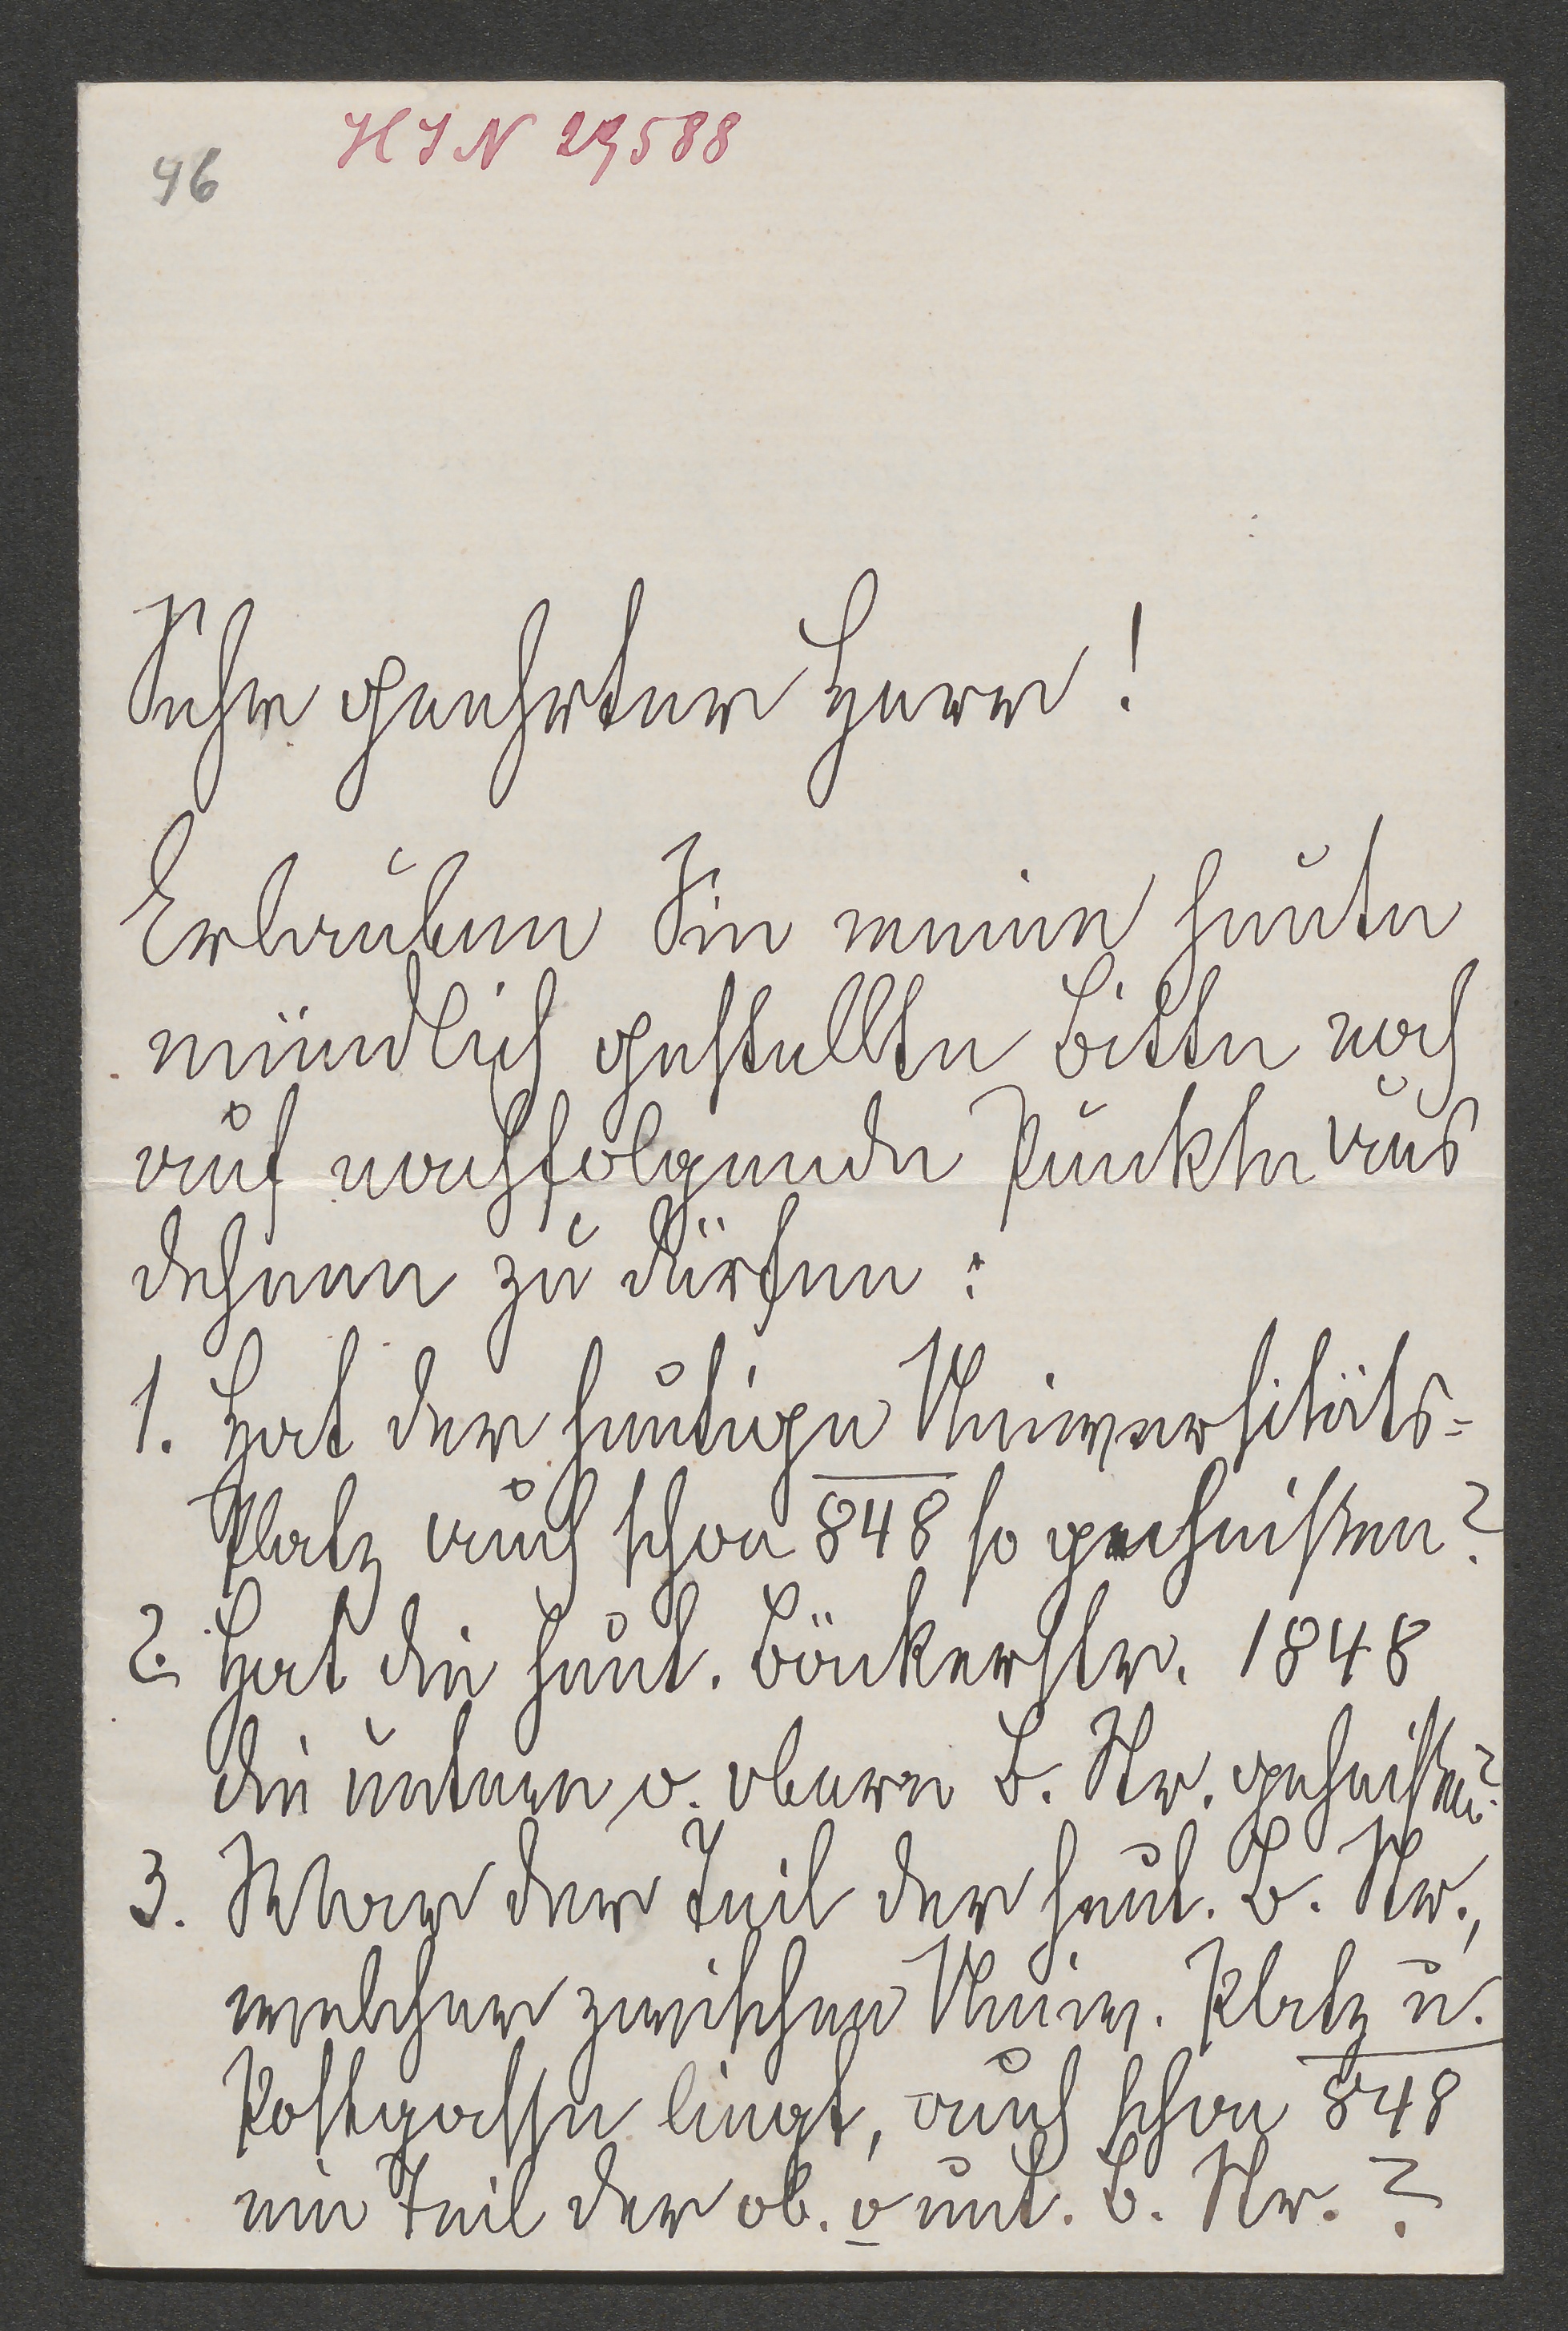 HIN 29588
46
Sehr geehrter Herr!
Erlauben Sie meine heute
mündlich gestellte Bitte noch
auf nachfolgende Punkte aus
dehnen zu dürfen:
1. Hat der heutige Universitäts-
Platz auch schon 848 so geheißen?
2. Hat die heut. Bäckerstr. 1848
die untere o. obere B. Str. geheißen?
3. War der Teil der heut. B. Str.,
welcher zwischen Univ. Platz u.
Postgasse liegt, auch schon 848
ein Teil der ob. o unt. B. Str.?